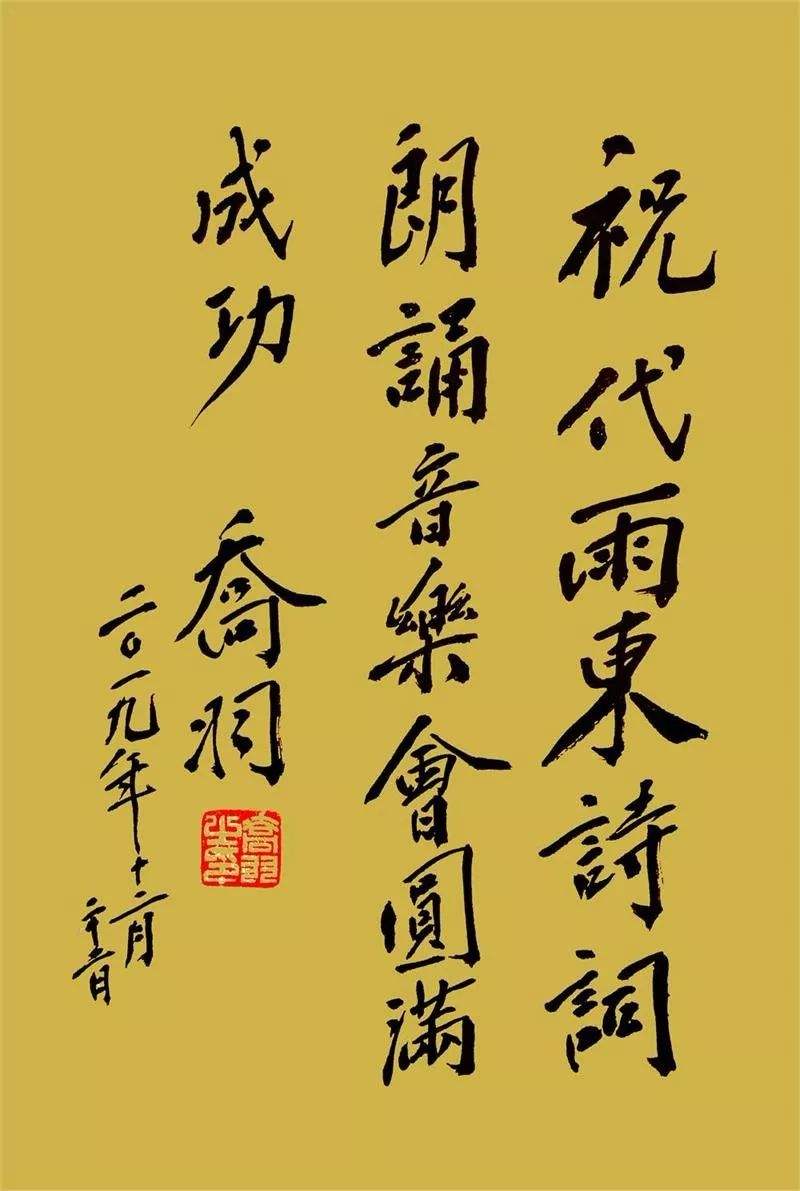 祝代雨東詩詞
朗誦音樂會圓滿
成功 喬羽
二〇一九年十二月